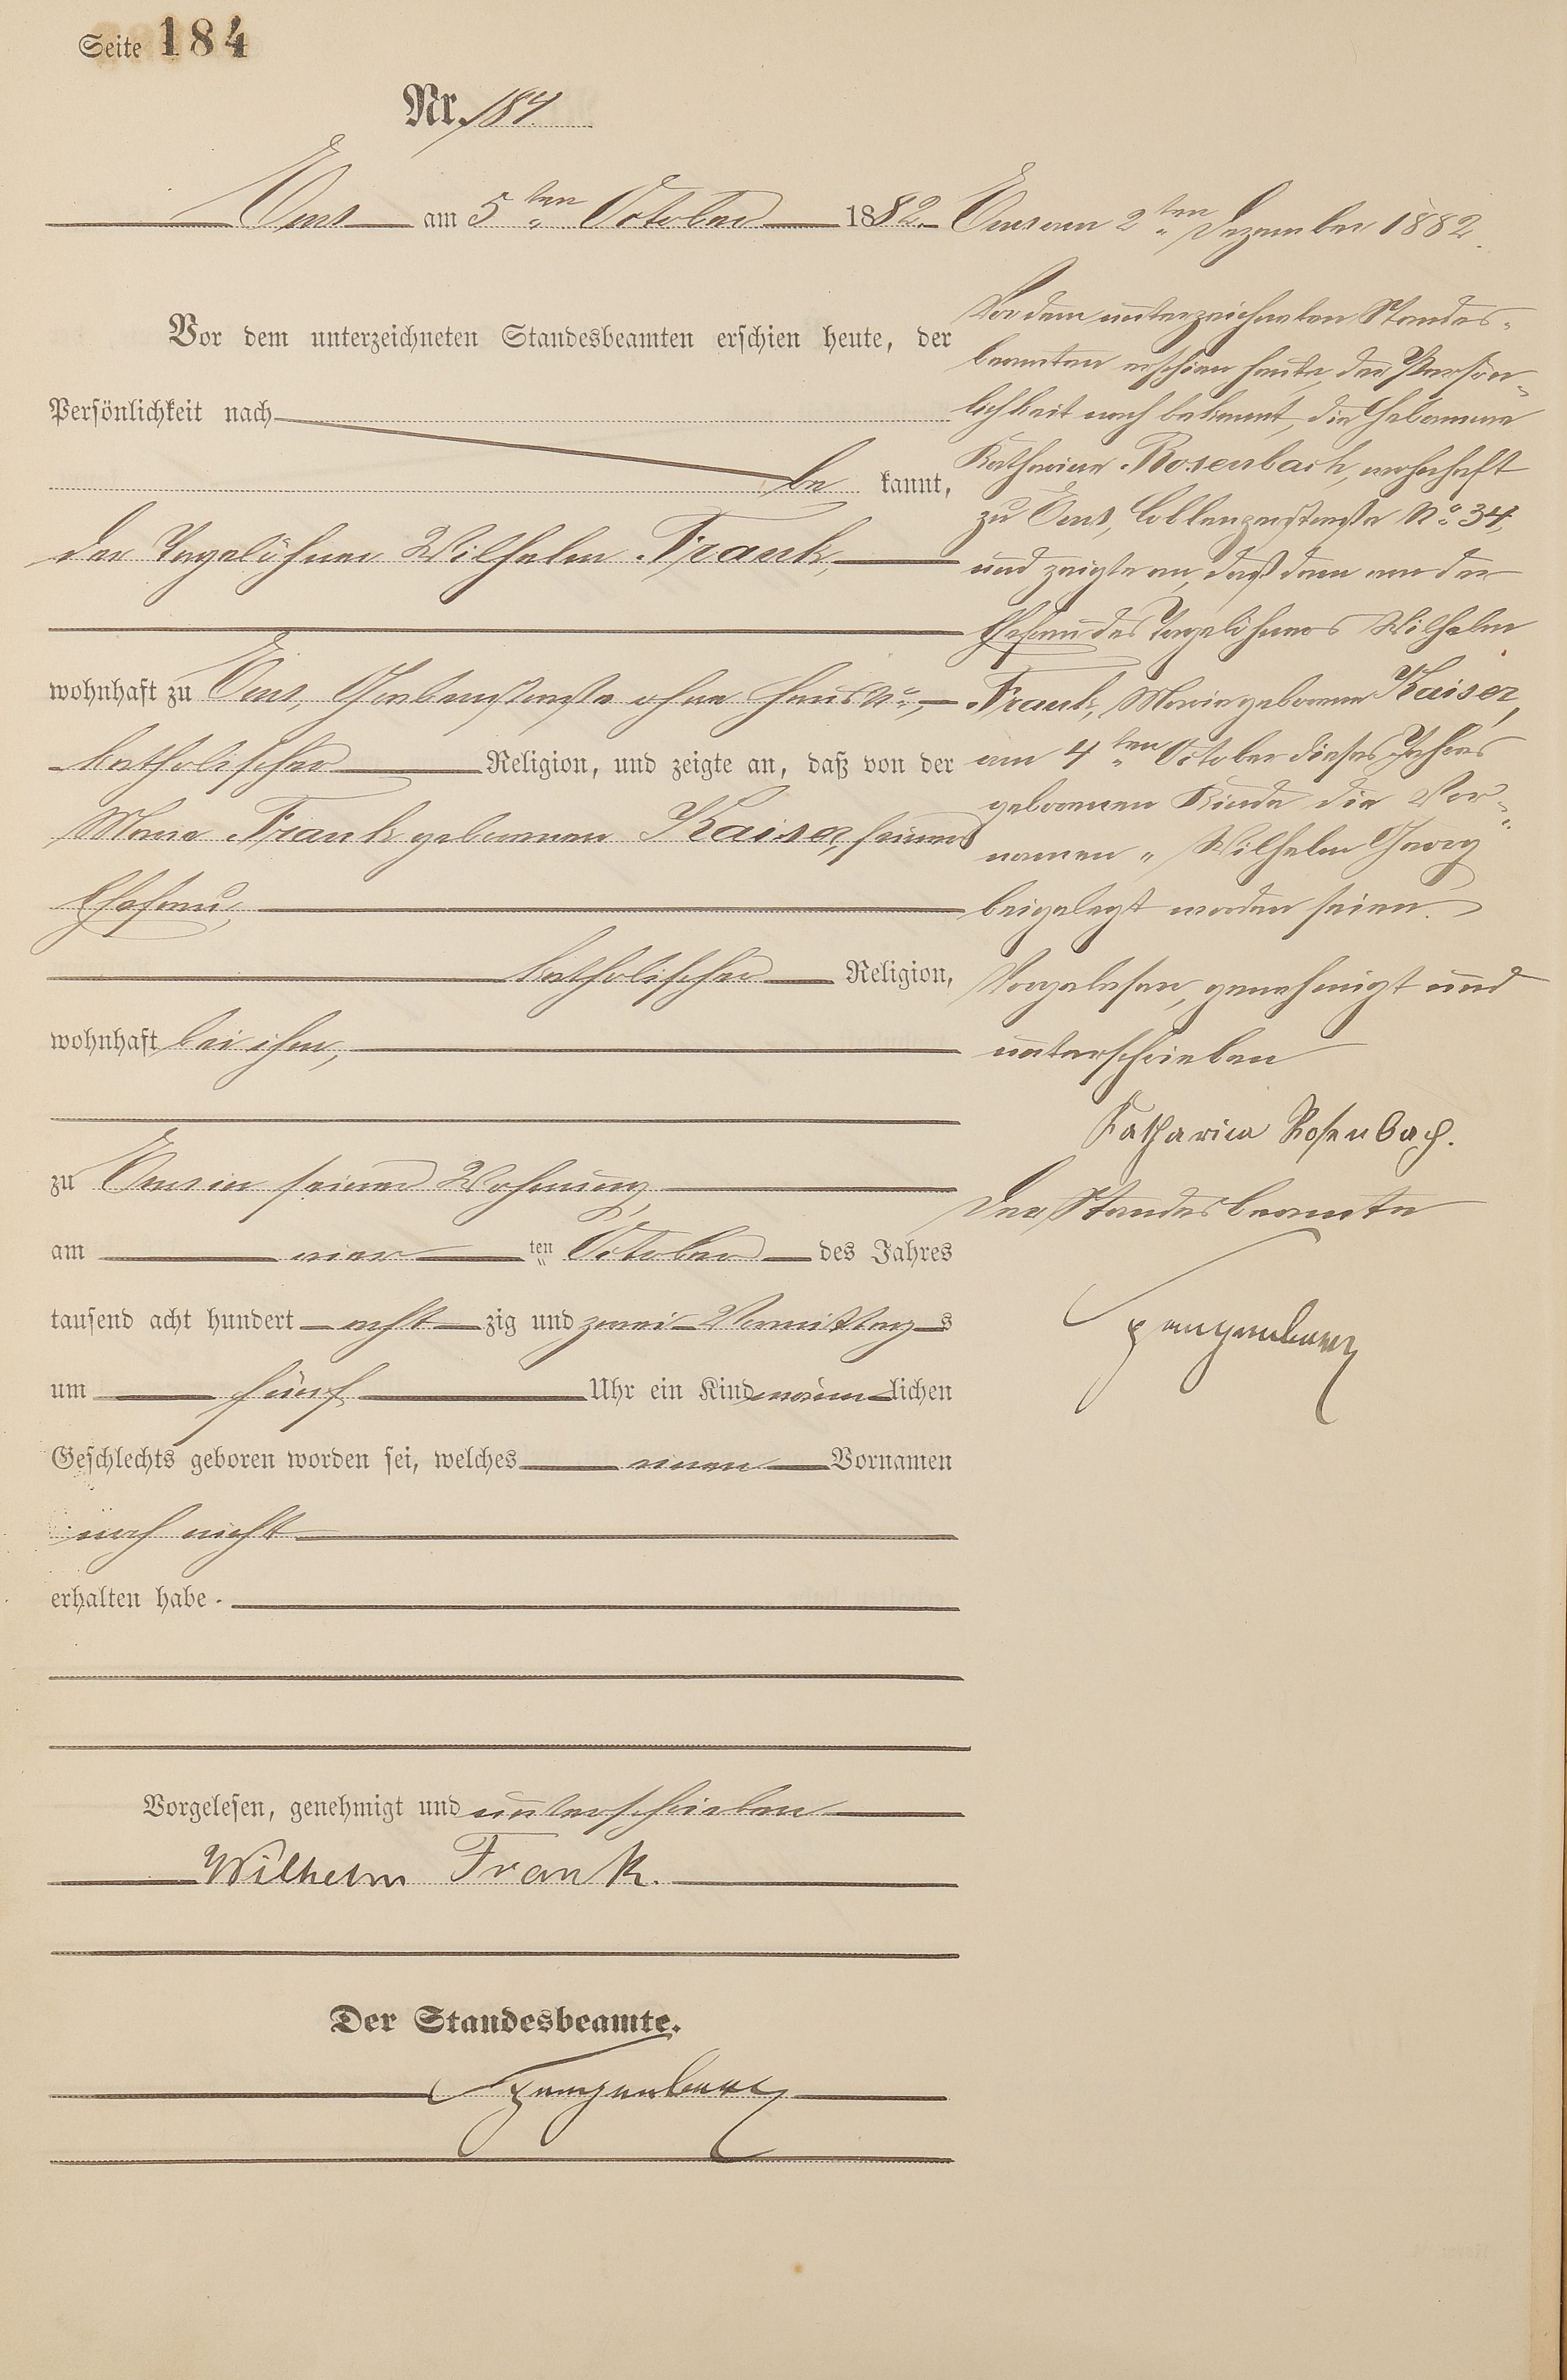 Seite 184
Nr. 184.
Ems am 5ten October 1882.
Vor dem unterzeichneten Standesbeamten erschien heute, der
Persönlichkeit nach
be kannt,
der Tagelöhner Wilhelm Frank,
wohnhaft zu Ems, Grabenstraße ohne Haus No,
katholischer Religion, und zeigte an, daß von der
Marie Frank geborenen Kaiser, seiner
Ehefrau,
katholischer Religion,
wohnhaft bei ihm,
zu Ems in seiner Wohnung,
am vier ten October des Jahres
tausend acht hundert acht zig und zwei Vormittag s
um fünf Uhr ein Kind männ lichen
Geschlechts geboren worden sei, welches einen Vornamen
noch nicht
erhalten habe.
Vorgelesen, genehmigt und unterschrieben
Wilhelm Frank.
Der Standesbeamte.
Ems am 2ten Dezember 1882.
Vor dem unterzeichneten Standes-
beamten erschien heute, der Persön-
lichkeit nach bekannt, die Hebamme
Katharina Rosenbach, wohnhaft
zu Ems, Coblenzerstraße No 34,
und zeigte an, daß dem von der
Ehefrau des Tagelöhners Wilhelm
Frank, Marie geborene Kaiser,
am 4ten October dieses Jahres
geborenen Kinde die Vor-
namen „Wilhelm Georg
beigelegt worden seien.
Vorgelesen, genehmigt und
unterschrieben
Katharina Rosenbach.
Der Standesbeamte